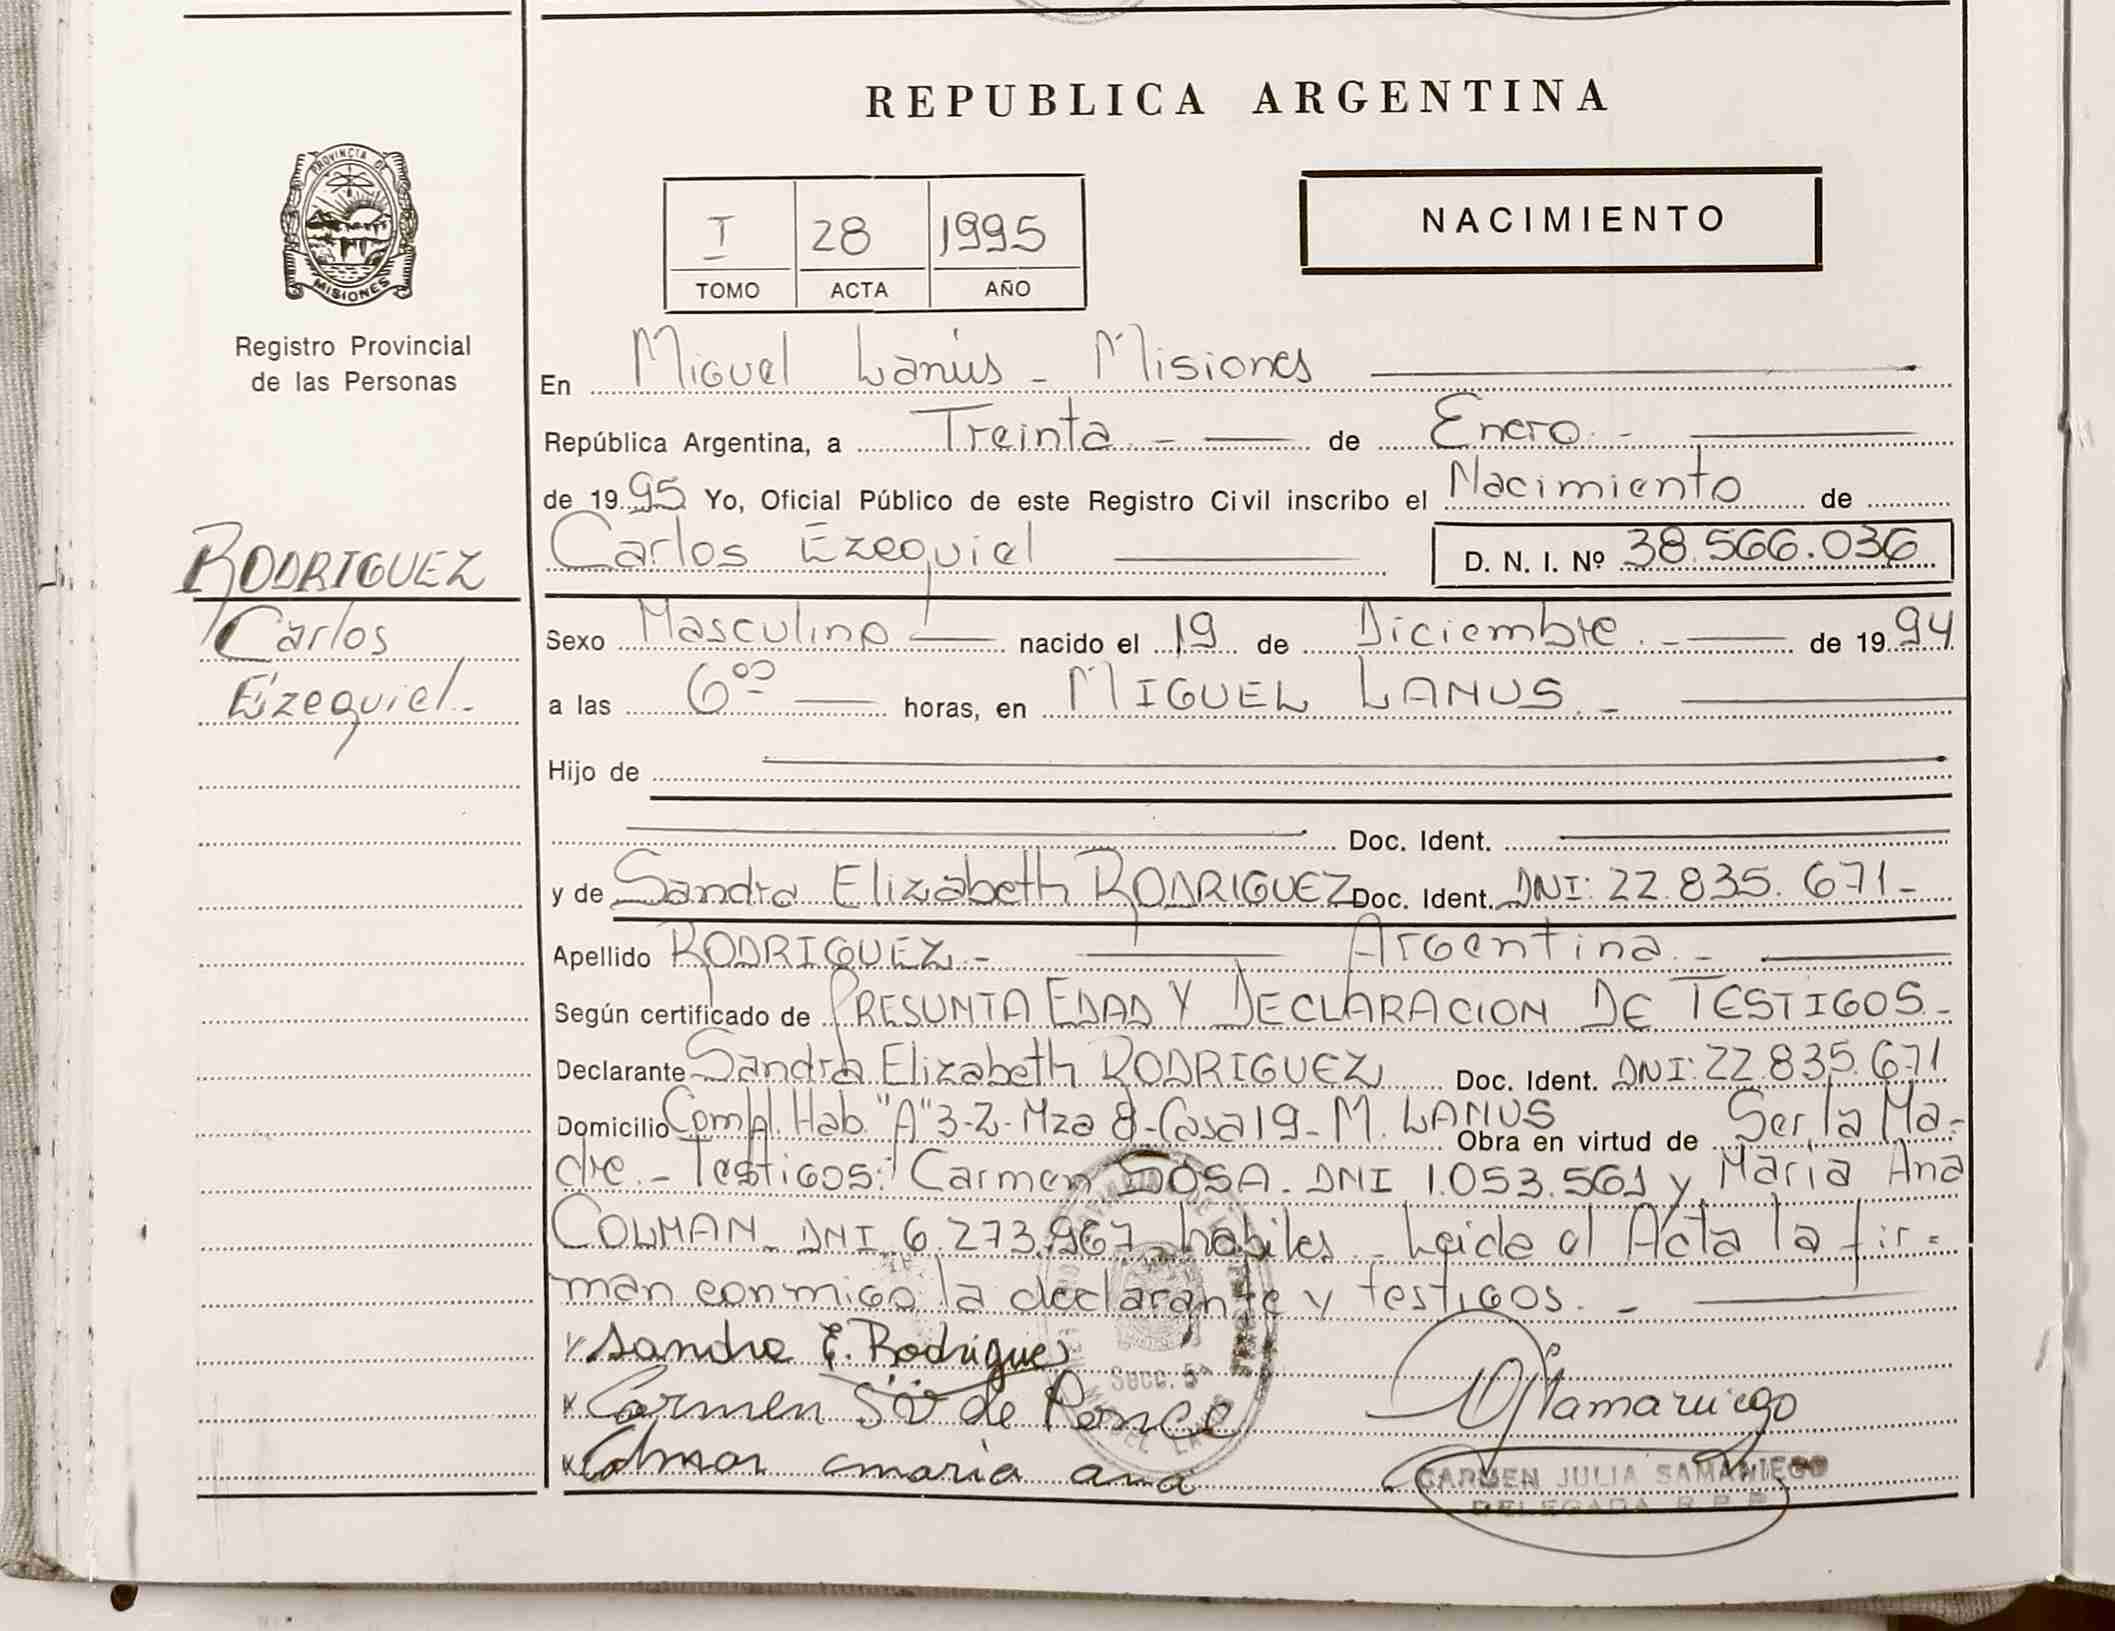 REPUBLICA ARGENTINA
PROVINCIA DE
MISIONES
Registro Provincial
de las Personas
I 28 1995
TOMO ACTA AÑO
NACIMIENTO
En Miguel Lanús - Misiones
República Argentina, a Treinta.- de Enero.-
de 1995 Yo, Oficial Público de este Registro Civil inscribo el Nacimiento de
Carlos Ezequiel D. N. I. Nº 38.566.036
RODRIGUEZ
Carlos
Ezequiel.-
Sexo Masculino nacido el 19 de Diciembre.- de 1994
a las 6⁰⁰ horas, en MIGUEL LANUS.-
Hijo de
Doc. Ident.
y de Sandra Elizabeth RODRIGUEZ Doc. Ident. DNI: 22.835.671-
Apellido RODRIGUEZ.- Argentina.-
Según certificado de PRESUNTA EDAD Y DECLARACION DE TESTIGOS.-
Declarante Sandra Elizabeth RODRIGUEZ Doc. Ident. DNI: 22.835.671
Domicilio Compl. Hab. "A"3-2- Mza 8-Casa 19- M. LANUS Obra en virtud de Ser la Ma-
dre.- Testigos: Carmen SOSA. DNI 1.053.561 y María Ana
COLMAN DNI 6.273.967 habiles - Leida el Acta la fir=
man conmigo la declarante y testigos.-
Sandra E. Rodriguez
Carmen de Ponce
Colman maria ana
Secc. 5ª
CARMEN JULIA SAMANIEGO
DELEGADA R.P.P.